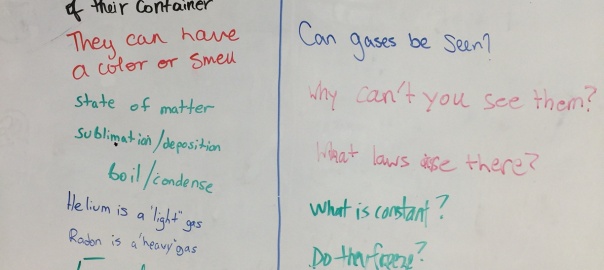 of their container
They can have
a color or smell
state of matter
sublimation/deposition
boil/condense
Helium is a "light" gas
Radon is a "heavy" gas
Can gases be seen?
Why can't you see them?
What laws are there?
What is constant?
Do they freeze?